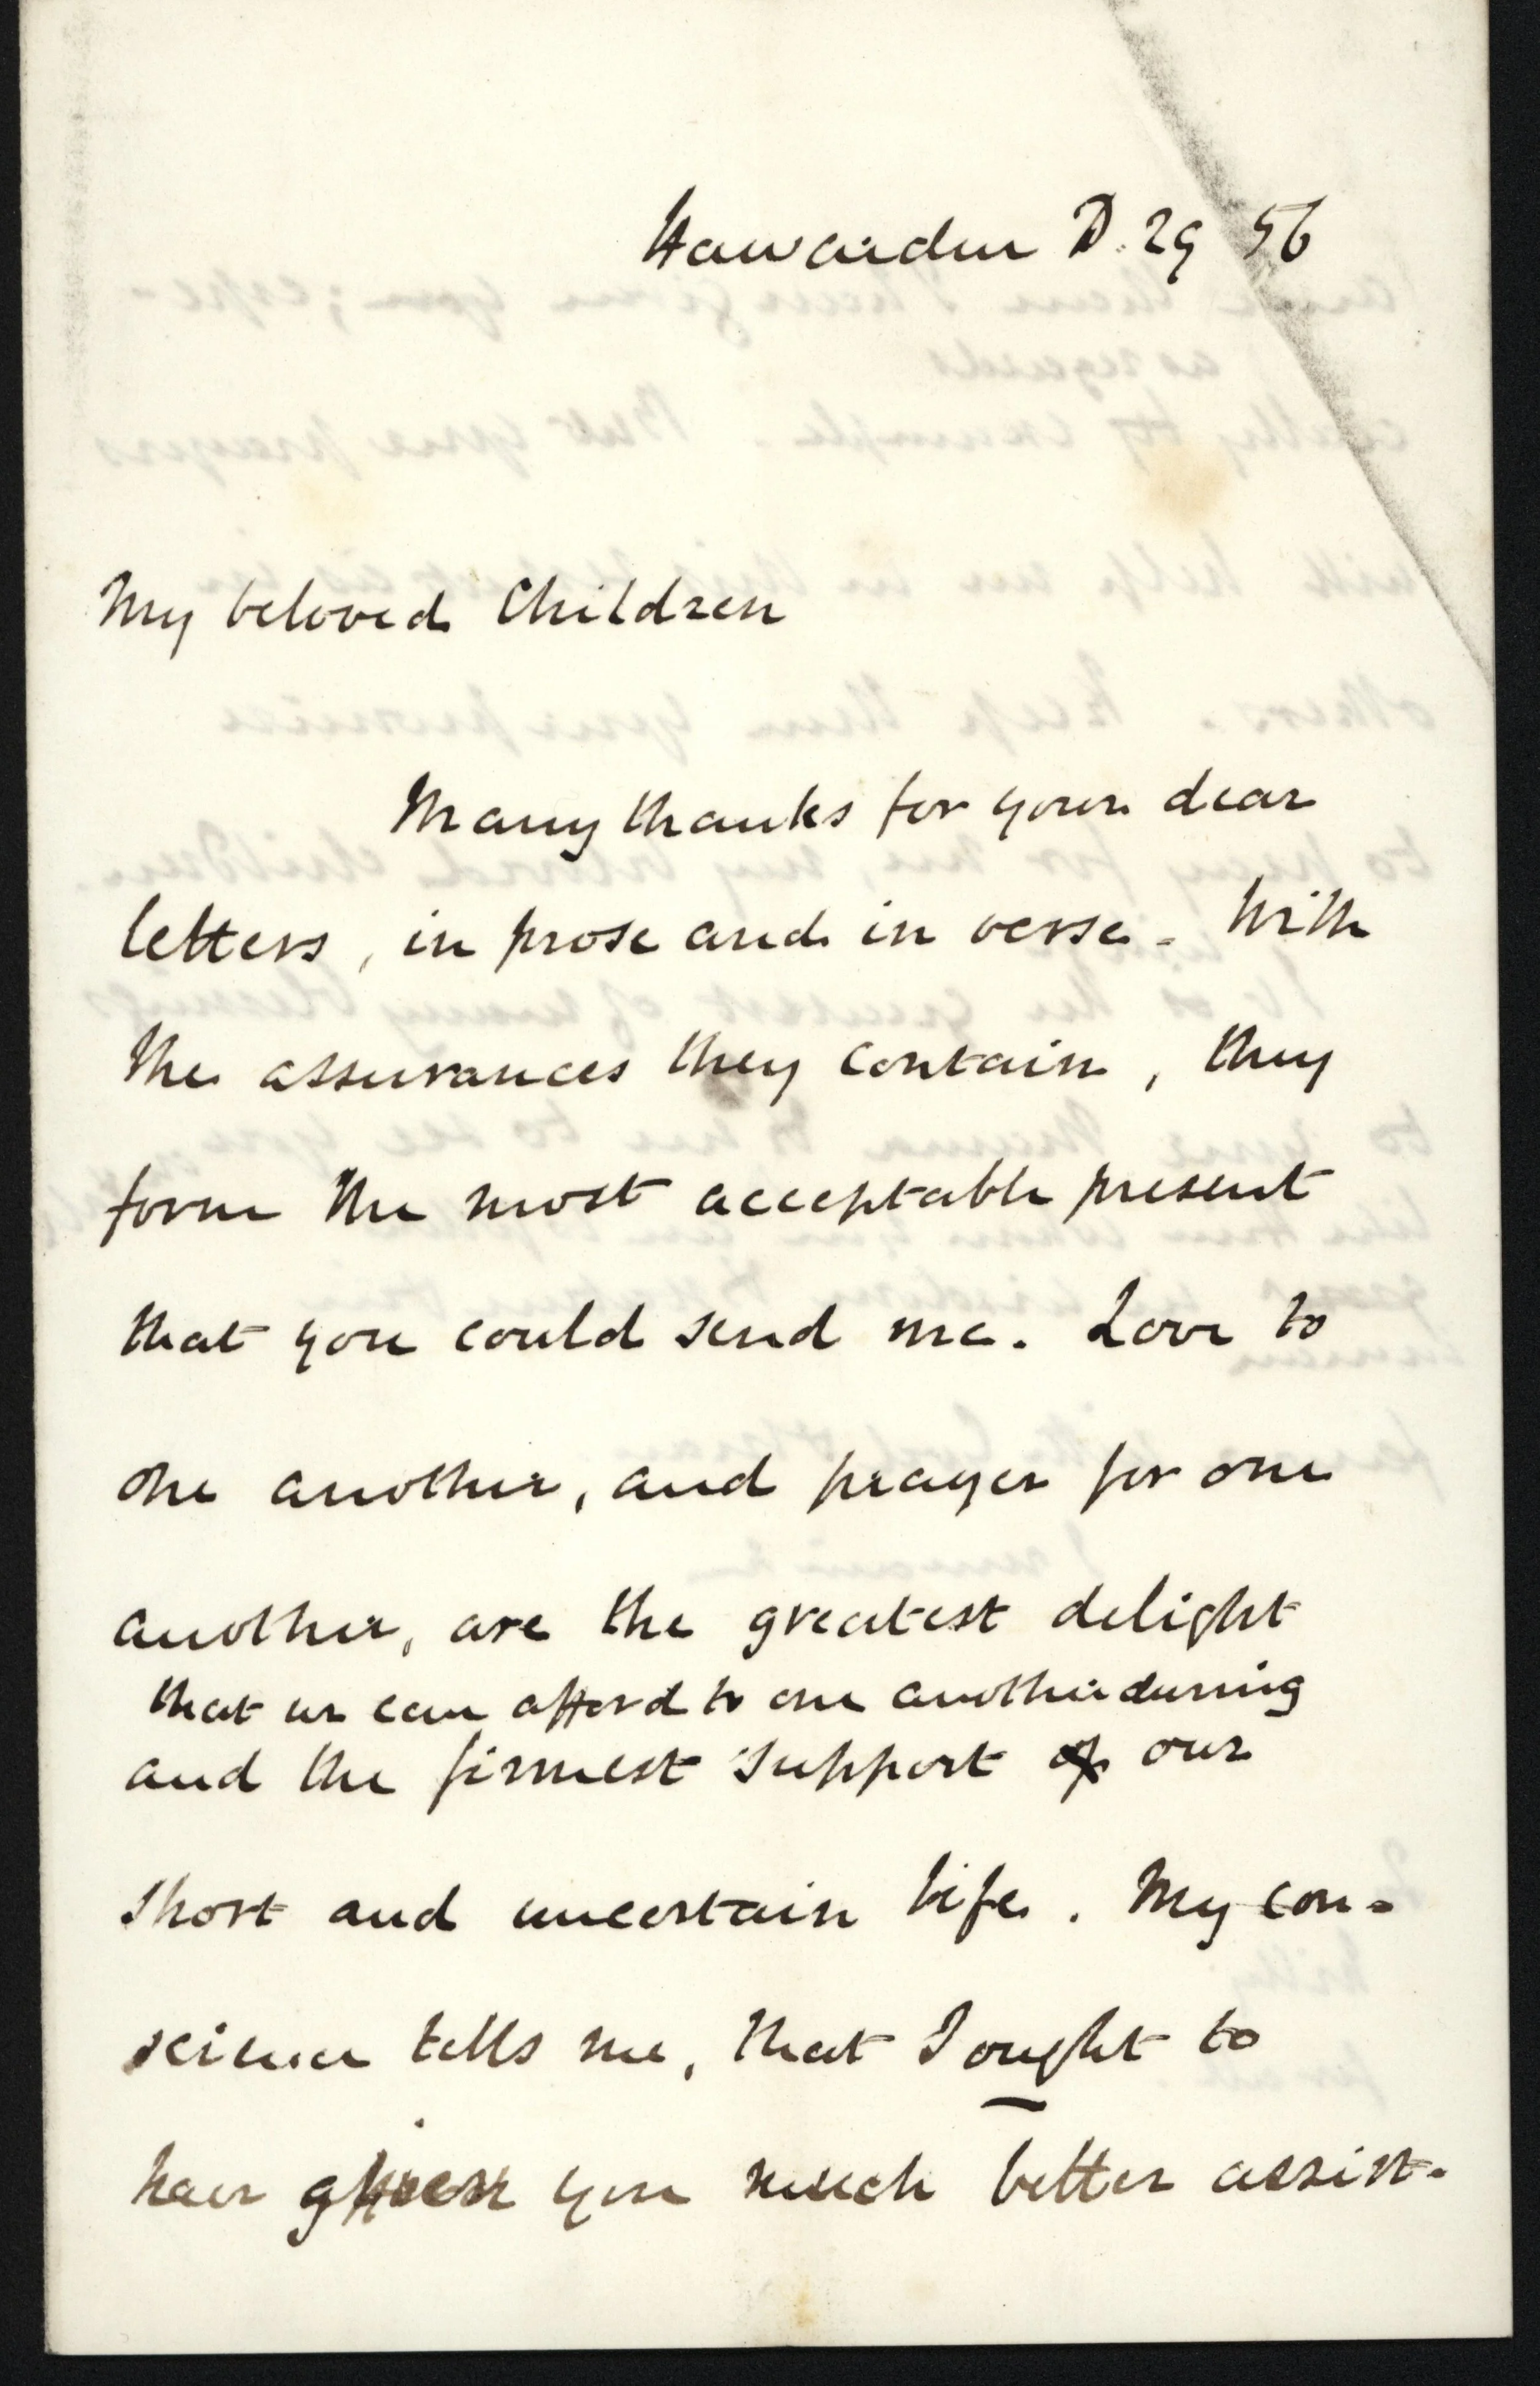 Hawarden D. 29 56
My beloved Children
Many thanks for your dear
letters, in prose and in verse. With
the assurances they contain, they
form the most acceptable present
that you could send me. Love to
one another, and prayer for one
another, are the greatest delight
that we can afford to one another during
and the firmest support of our
short and uncertain life. My con-
science tells me, that I ought to
have given you much better assist-